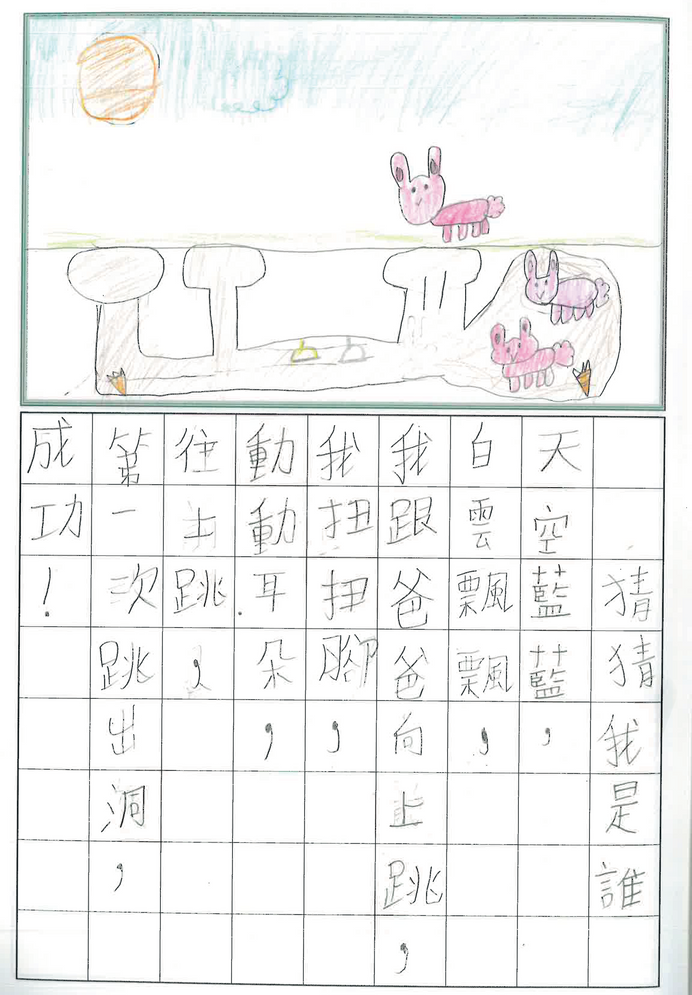 猜猜我是誰
天空藍藍，
白雲飄飄，
我跟爸爸向上跳，
我扭扭腳，
動動耳朵，
往上跳，
第一次跳出洞，
成功！